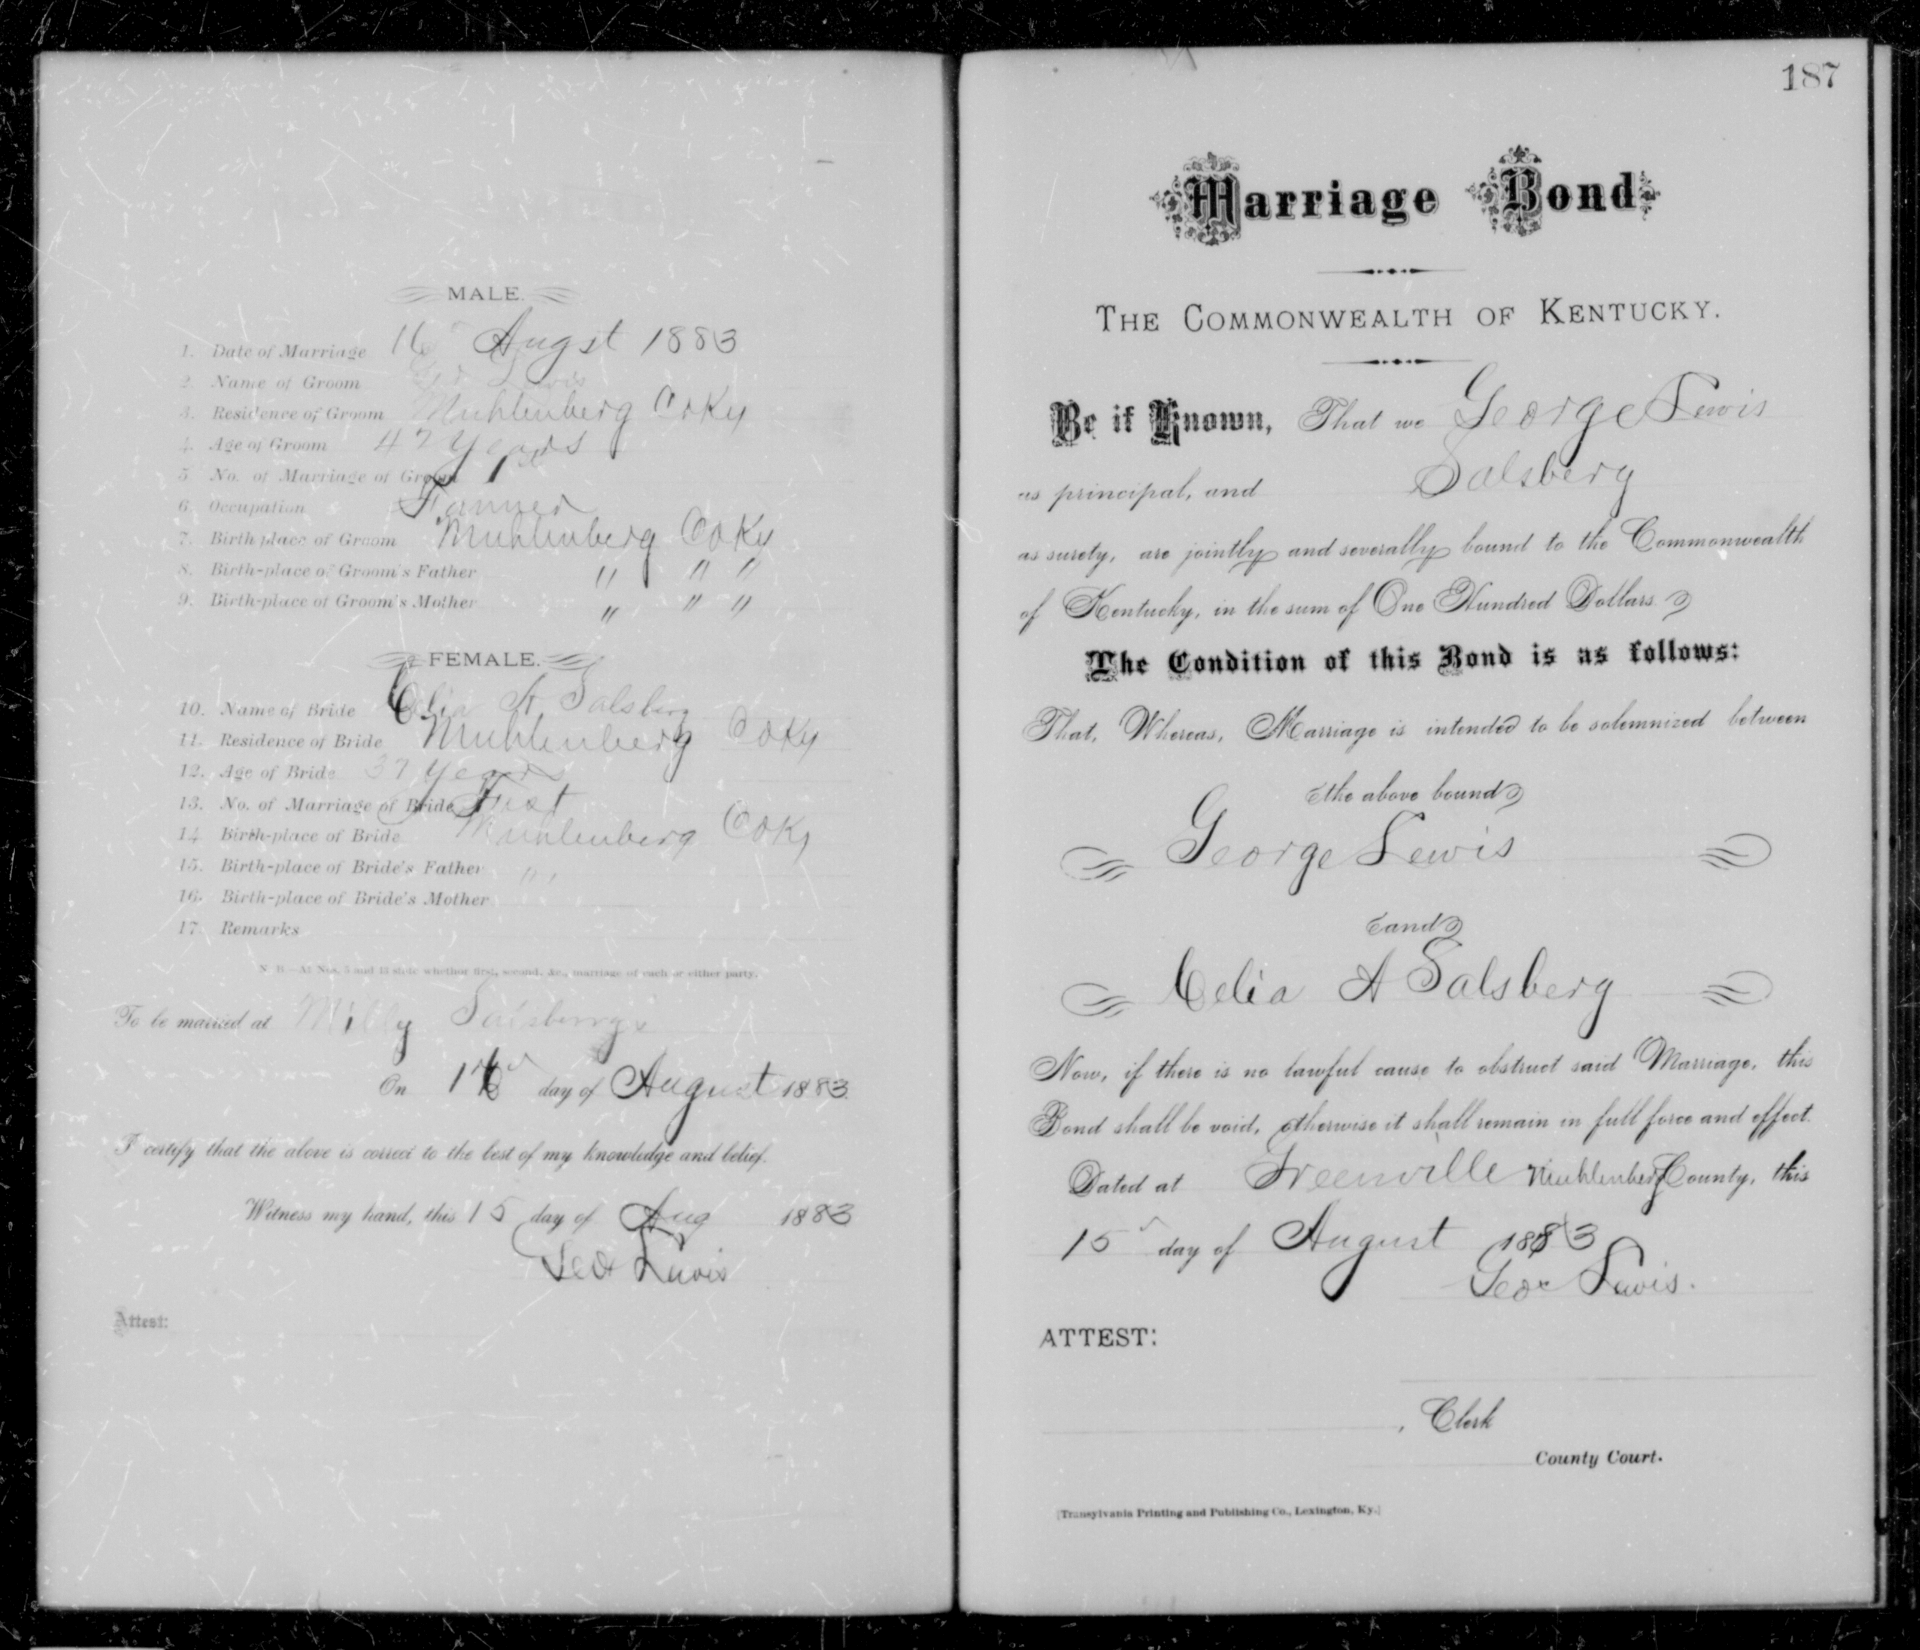 MALE.
1. Date of Marriage 16 Augst 1883
2. Name of Groom Geo Lewis
3. Residence of Groom Muhlenberg Co Ky
4. Age of Groom 47 Years
5 No. of Marriage of Groom 1st
6. Occupation Farmer
7. Birth place of Groom Muhlenberg Co Ky
8. Birth-place of Groom's Father " " "
9. Birth-place of Groom's Mother " " "
FEMALE.
10. Name of Bride Celia A Salsberg
11. Residence of Bride Muhlenberg Co Ky
12. Age of Bride 37 Years
13. No. of Marriage of Bride First
14 Birth-place of Bride Muhlenberg Co Ky
15. Birth-place of Bride's Father " "
16. Birth-place of Bride's Mother
17. Remarks
N. B.—At Nos. 5 and 13 state whether first, second, &c., marriage of each or either party.
To be married at Milly Salsbergs
On 16 day of August 1883
I certify that the above is correct to the best of my knowledge and belief.
Witness my hand, this 15 day of Aug 1883
Geo Lewis
Attest:
187
Marriage Bond
THE COMMONWEALTH OF KENTUCKY.
Be it Known, That we George Lewis
as principal, and Salsberg
as surety, are jointly and severally bound to the Commonwealth
of Kentucky, in the sum of One Hundred Dollars
The Condition of this Bond is as follows:
That, Whereas, Marriage is intended to be solemnized between
the above bound
George Lewis
and
Celia A Salsberg
Now, if there is no lawful cause to obstruct said Marriage, this
Bond shall be void, otherwise it shall remain in full force and effect.
Dated at Greenville Muhlenberg County, this
15 day of August 1883
Geo Lewis.
ATTEST:
, Clerk
County Court.
[Transylvania Printing and Publishing Co., Lexington, Ky.]